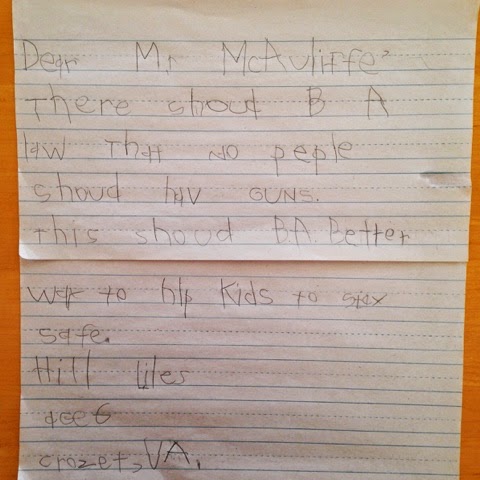 Dear Mr McAuliffe,
There shoud B A
law That no peple
shoud hav GUNS.
This shoud BA. Better
way to hlp Kids to stay
safe.
Hill liles
age 6
crozet, VA.